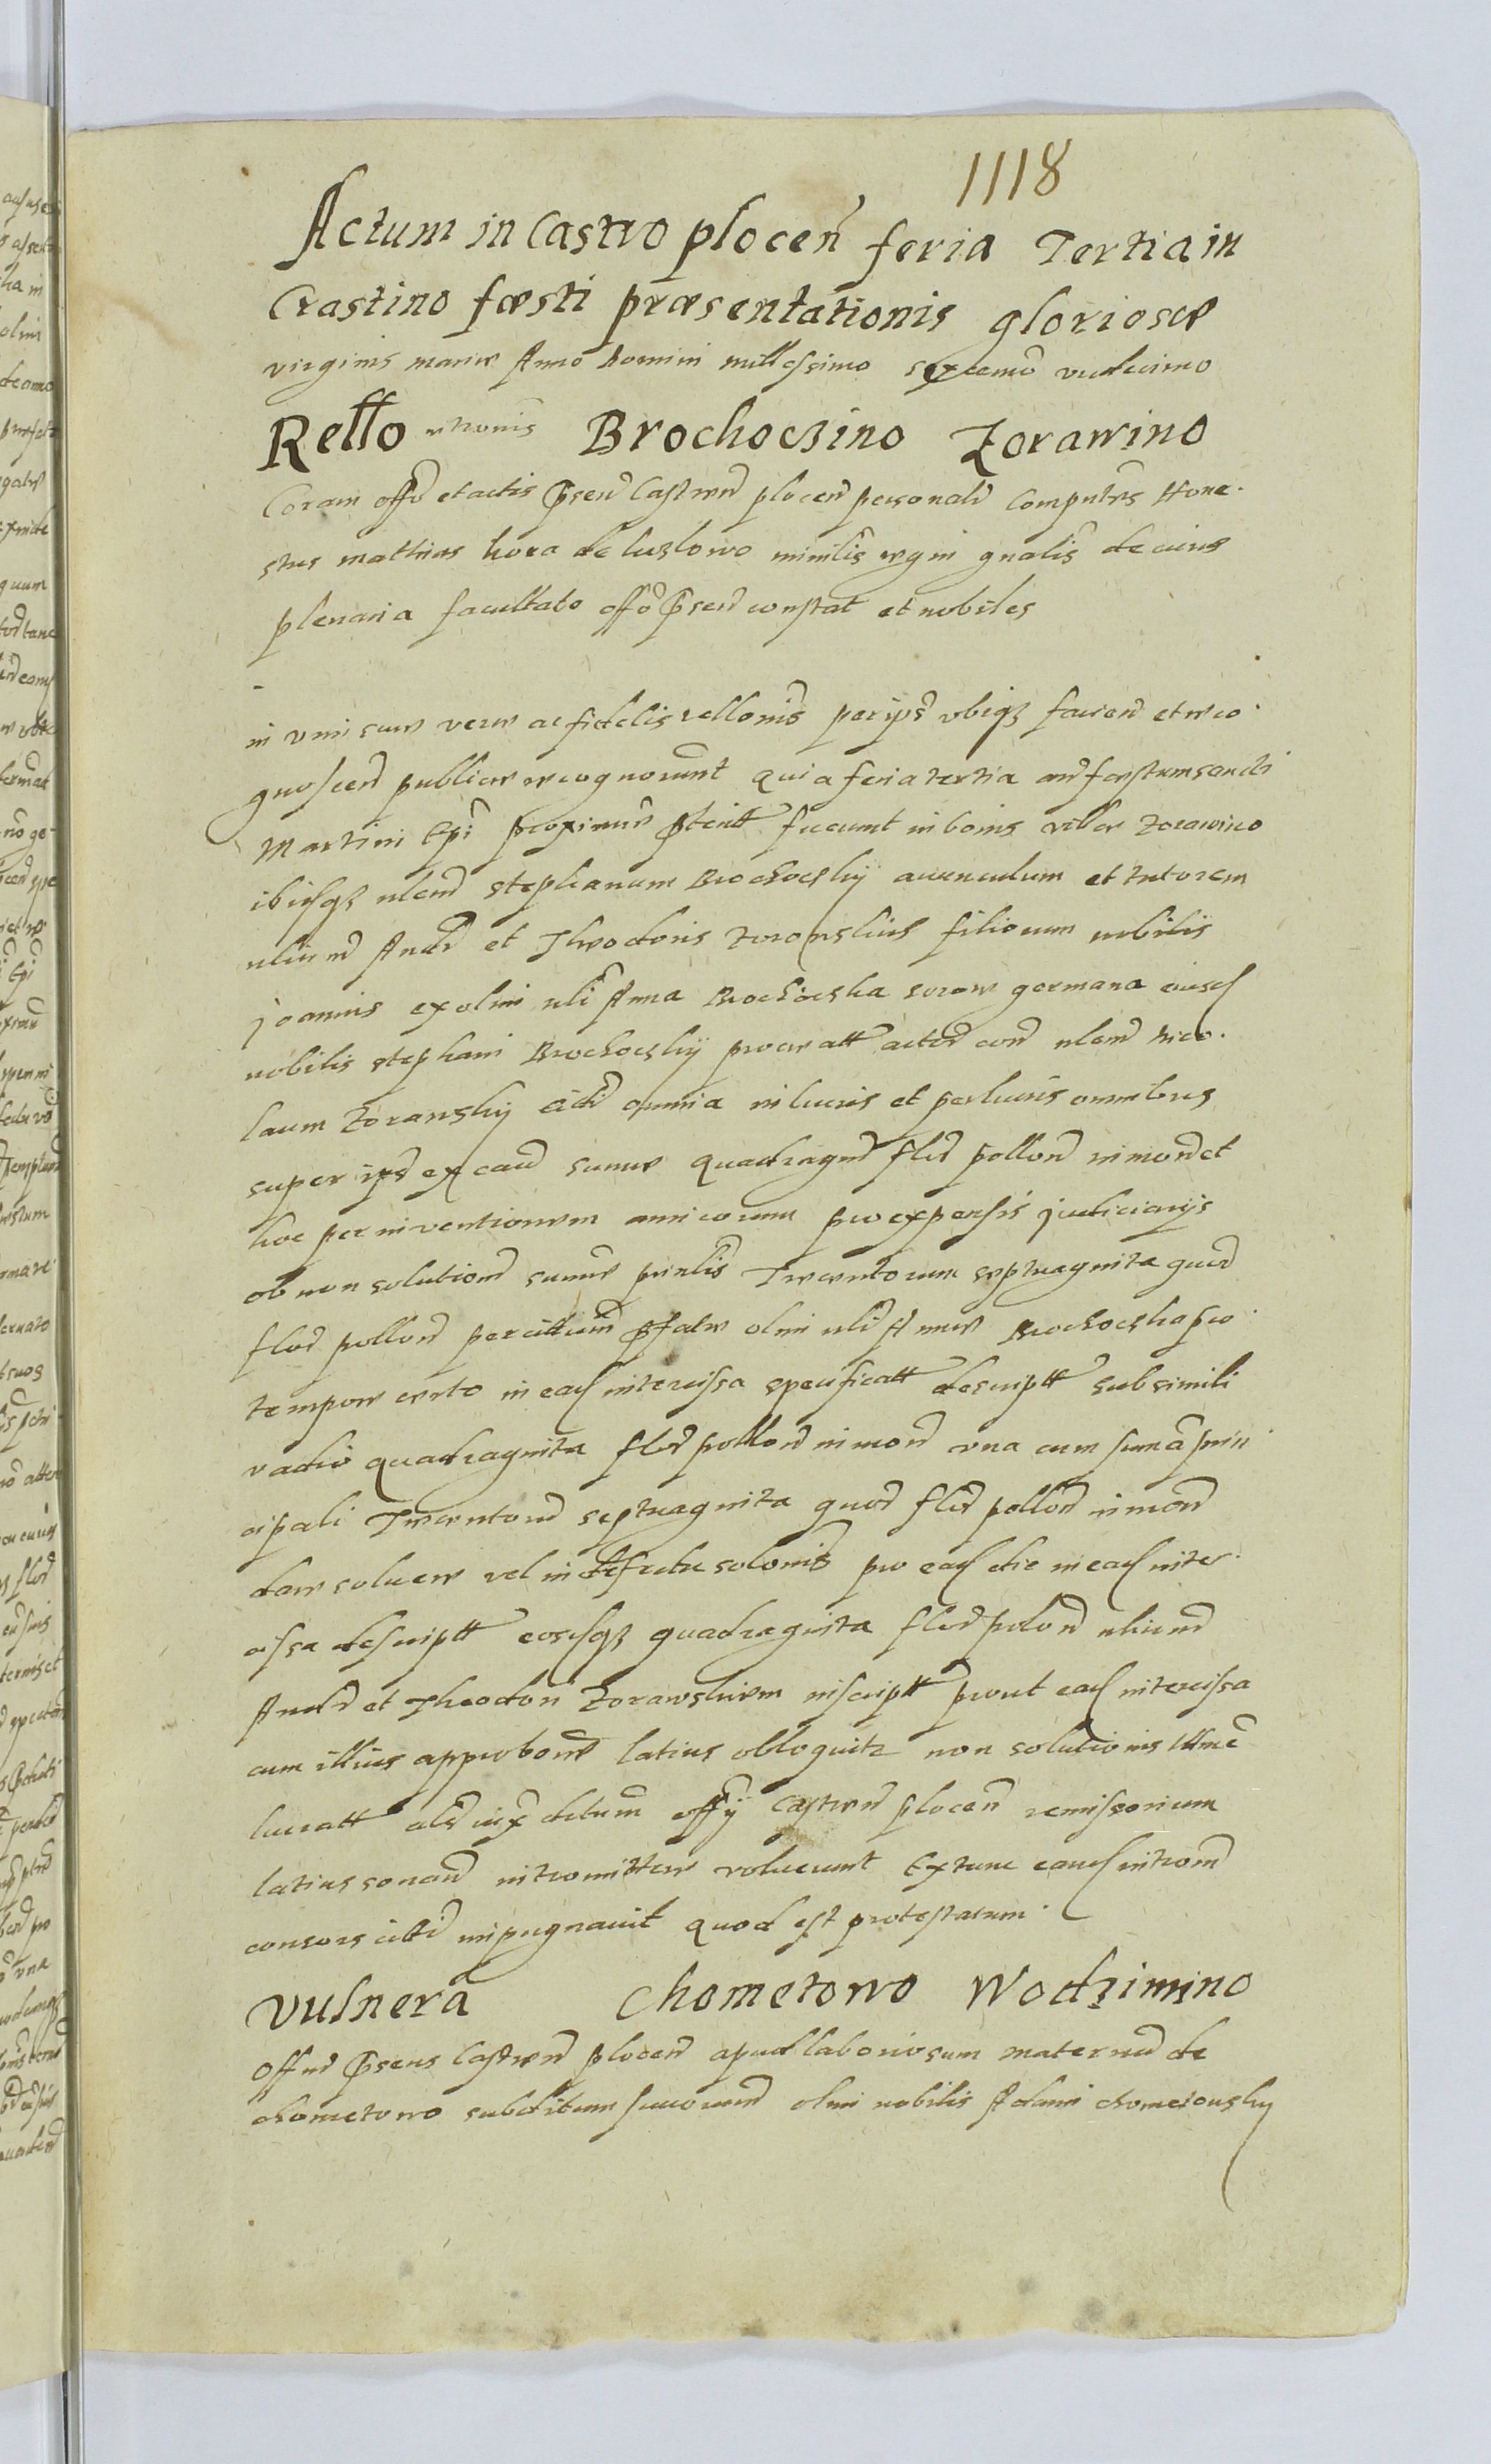 1118
Actum in Castro plocen̄ feria Tertia in
Crastino fœsti præsentationis gloriosæ
virginis mariæ Anno domini millesimo sexcemo vndecimo
Rello Brochoczino Zorawino
Coram offo et actis pseń Castreń ploceń personalr Comparens Hone.
stus mathias kora de luszlowo minilis regni gnalis de cuius
plenaria facultate offo pseń constat et nobiles
in vim suæ veræ ac fidelis rellonis per ips vbiqz facień et reco.
gnosceń publice recognorunt quia feria tertia an festum sancti
Martini Epi proximæ pterit fuerunt in bonis villæ Zorawino
ibidqz nlem stephanum Brochoczky auunculum et tutorem
nlium Andr et Theodoris Zorawskich filiorum nobilis
joannis ex olim nli Anna Brochocska sorore germana eiusd
nobilis stephani Brochocsky procreatt actor con nlem Nico.
laum Zorawsky citt omnia in lucris et perlucris omnibus
super ipo ex cau summæ quadragin flor pollon in mon et
hoc per inventionem amicorum pro expensis judiciarijs
ob non solution summæ prinlis Trecentorum septuaginta quor
flor pollon per cittum pfatæ olim nlis Annæ Brochocska pro
tempore certo in ead intercisa specificatt descriptt sub simili
vadio quadraginta flor pollon in mon vna cum suma prin
cipali Trecentorum septuaginta quor flor pollon in mon
dare soluere vel in defectu solonis pro ead die in ead inter.
cisa descriptt eosdqz quadraginta flor polon nlium
Andr et Theodori Zorawskiem inscriptt prout ead intercisa
cum illius approbone latius obloquitr non solutionis
lucratt als iux ditum offij Castren plocen remissorium
latius sonan intromittere voluerunt Extunc eand introm
consors citti impugnauit quod est protestatum.
vulnera Chometowo Wodzimino
Offm psens Castren plocen apud laboriosum maternum de
chometowo subditum succorum olim nobilis Adami chometowsky